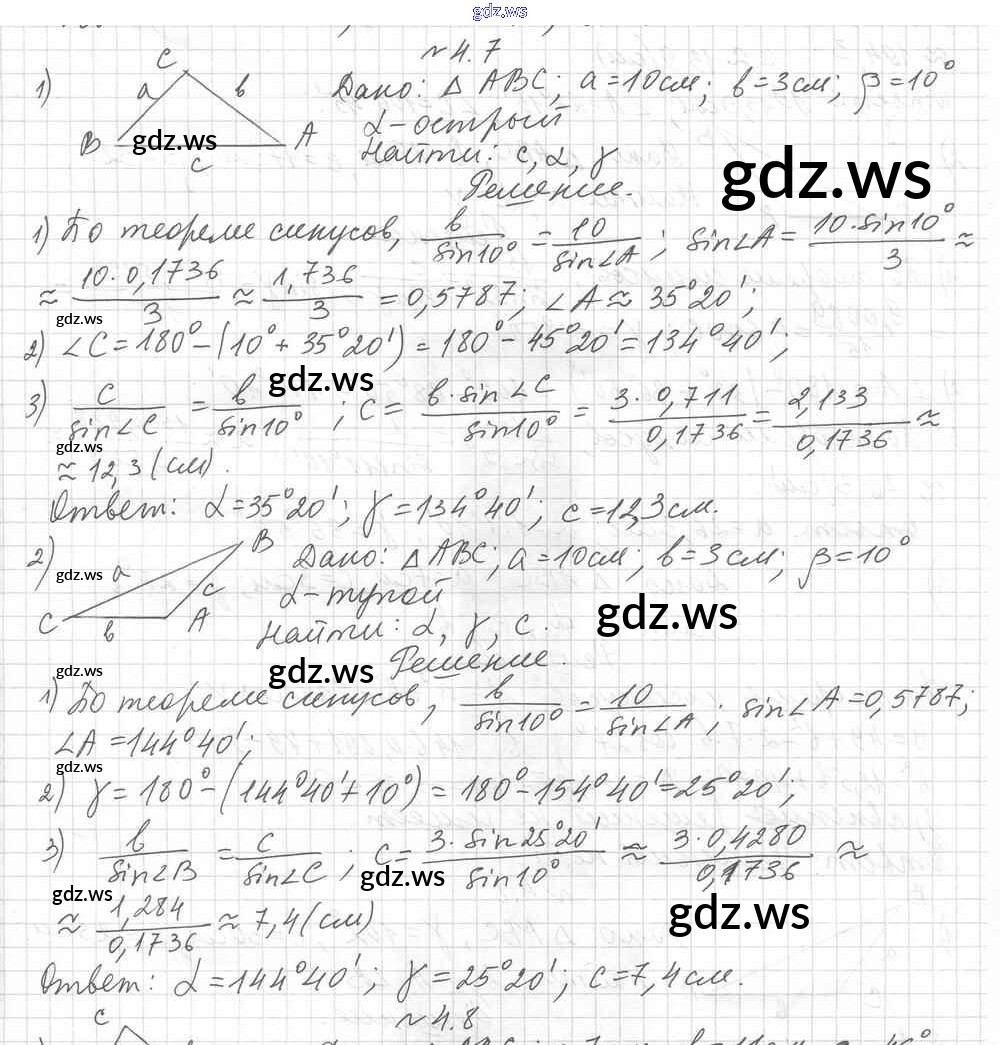 gdz.ws
№ 4.7
1) C a в B c A Дано: △ ABC; a = 10см; в = 3см; β = 10°
α - острый
gdz.ws
Найти: c, α, γ
gdz.ws
Решение.
1) По теореме синусов, в/sin10° = 10/sin∠A; sin∠A = 10·sin10°/3 ≈
≈ 10·0,1736/3 ≈ 1,736/3 = 0,5787; ∠A ≈ 35°20';
gdz.ws
2) ∠C = 180° - (10° + 35°20') = 180° - 45°20' = 134°40';
gdz.ws
3) c/sin∠C = в/sin10°; c = в·sin∠C/sin10° = 3·0,711/0,1736 = 2,133/0,1736 ≈
gdz.ws
≈ 12,3 (см).
Ответ: α = 35°20'; γ = 134°40'; c = 12,3см.
2) B a c C в A Дано: △ ABC; a = 10см; в = 3см; β = 10°
gdz.ws
α - тупой
gdz.ws
Найти: α, γ, c.
Решение.
gdz.ws
gdz.ws
1) По теореме синусов, в/sin10° = 10/sin∠A; sin∠A = 0,5787;
∠A = 144°40';
gdz.ws
2) γ = 180° - (144°40' + 10°) = 180° - 154°40' = 25°20';
3) в/sin∠B = c/sin∠C; c = 3·sin25°20'/sin10° ≈ 3·0,4280/0,1736 ≈
gdz.ws
gdz.ws
gdz.ws
≈ 1,284/0,1736 ≈ 7,4 (см)
Ответ: α = 144°40'; γ = 25°20'; c = 7,4см.
№ 4.8
C